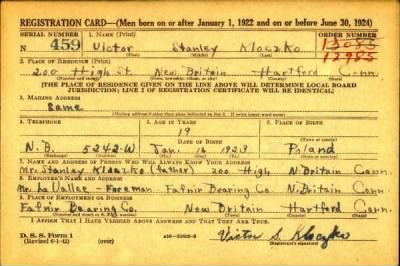 REGISTRATION CARD—(Men born on or after January 1, 1922 and on or before June 30, 1924)
SERIAL NUMBER 1. NAME (Print) ORDER NUMBER
N 459 Victor Stanley Kloczko 13085
(First) (Middle) (Last) 12985
2. PLACE OF RESIDENCE (Print)
200 High St. New Britain Hartford Conn.
(Number and street) (Town, township, village, or city) (County) (State)
[THE PLACE OF RESIDENCE GIVEN ON THE LINE ABOVE WILL DETERMINE LOCAL BOARD
JURISDICTION; LINE 2 OF REGISTRATION CERTIFICATE WILL BE IDENTICAL]
3. MAILING ADDRESS
Same
(Mailing address if other than place indicated on line 2. If same, insert word same)
4. TELEPHONE 5. AGE IN YEARS 6. PLACE OF BIRTH
19
DATE OF BIRTH
N.B. 5242-W Jan. 16 1923 Poland
(Exchange) (Number) (Mo.) (Day) (Yr.) (State or country)
7. NAME AND ADDRESS OF PERSON WHO WILL ALWAYS KNOW YOUR ADDRESS
Mr. Stanley Kloczko (father) 200 High N Britain Conn.
8. EMPLOYER'S NAME AND ADDRESS
Mr. La Vallee - Foreman Fafnir Bearing Co. N. Britain Conn.
9. PLACE OF EMPLOYMENT OR BUSINESS
Fafnir Bearing Co. New Britain Hartford Conn.
(Number and street or R. F. D. number) (Town) (County) (State)
I AFFIRM THAT I HAVE VERIFIED ABOVE ANSWERS AND THAT THEY ARE TRUE.
D. S. S. Form 1
(Revised 6-1-42) (over) Victor S. Kloczko
(Registrant's signature)